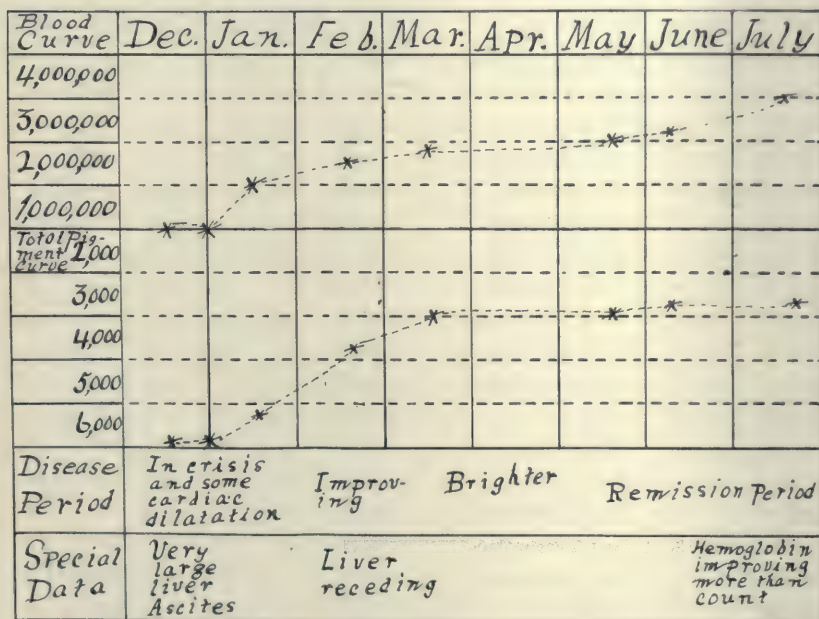 Blood Curve Dec. Jan. Feb. Mar. Apr. May June July
4,000,000
3,000,000
2,000,000
1,000,000
Total Pig-
ment 2,000
curve
3,000
4,000
5,000
6,000
Disease
Period
In crisis
and some
cardiac
dilatation
Improv-
ing
Brighter
Remission Period
Special
Data
Very
large
liver
Ascites
Liver
receding
Hemoglobin
improving
more than
count